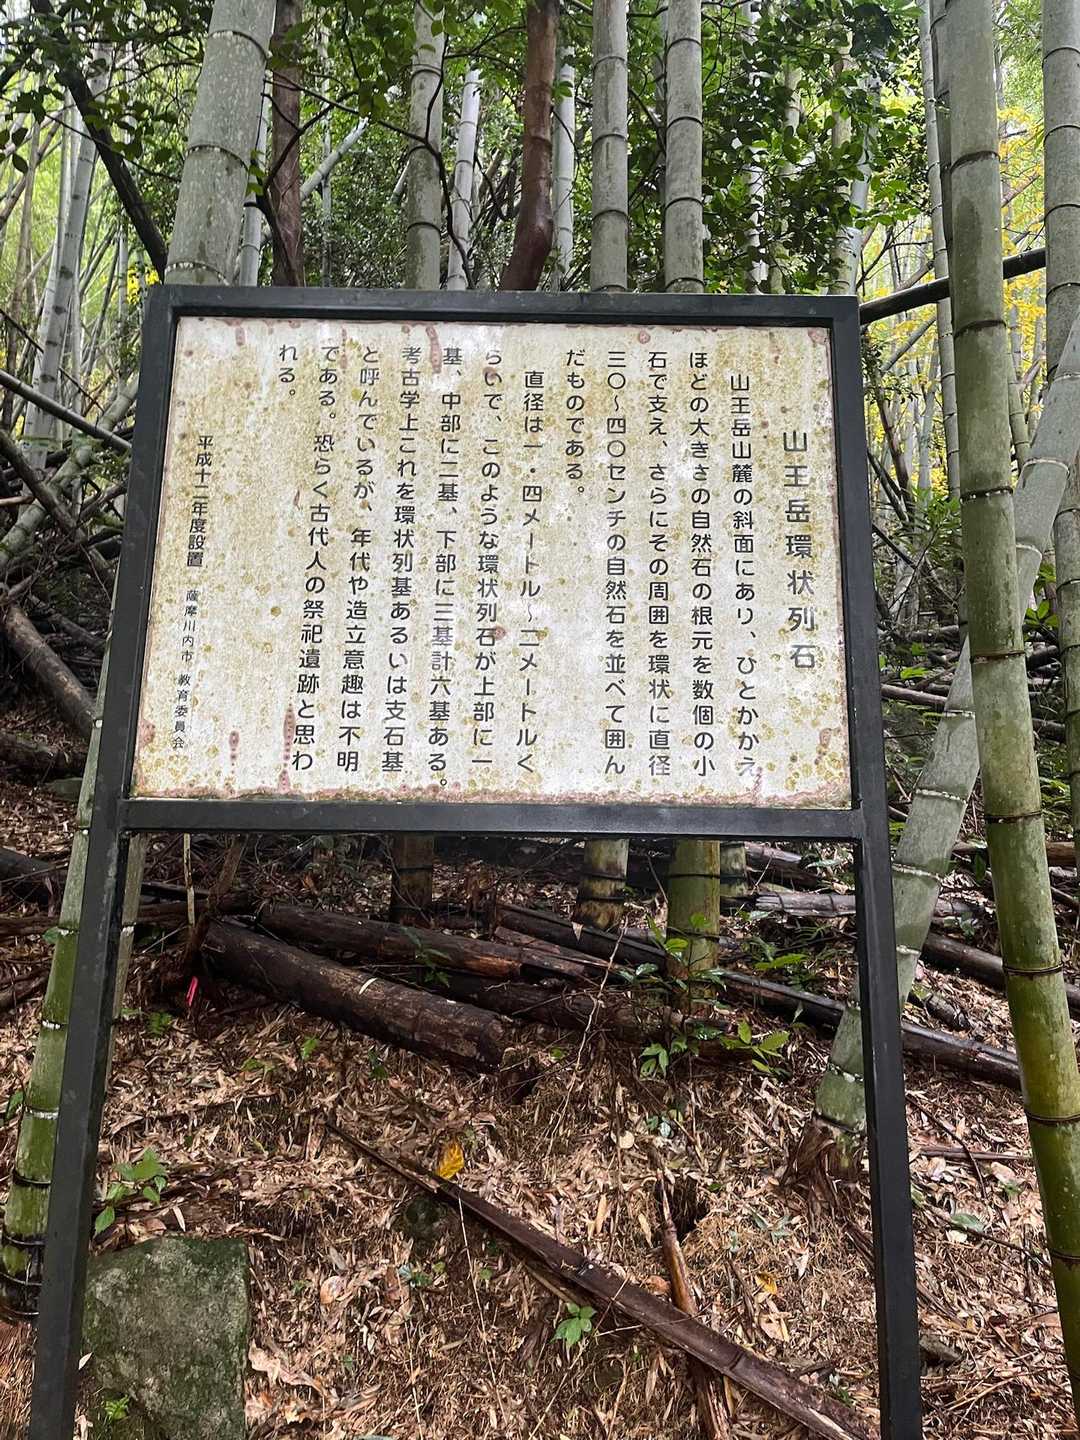 山王岳環状列石
山王岳山麓の斜面にあり、ひとかかえ
ほどの大きさの自然石の根元を数個の小
石で支え、さらにその周囲を環状に直径
三〇～四〇センチの自然石を並べて囲ん
だものである。
直径は一・四メートル～二メートルく
らいで、このような環状列石が上部に一
基、中部に二基、下部に三基計六基ある。
考古学上これを環状列基あるいは支石基
と呼んでいるが、年代や造立意趣は不明
である。恐らく古代人の祭祀遺跡と思わ
れる。
平成十二年度設置 薩摩川内市 教育委員会